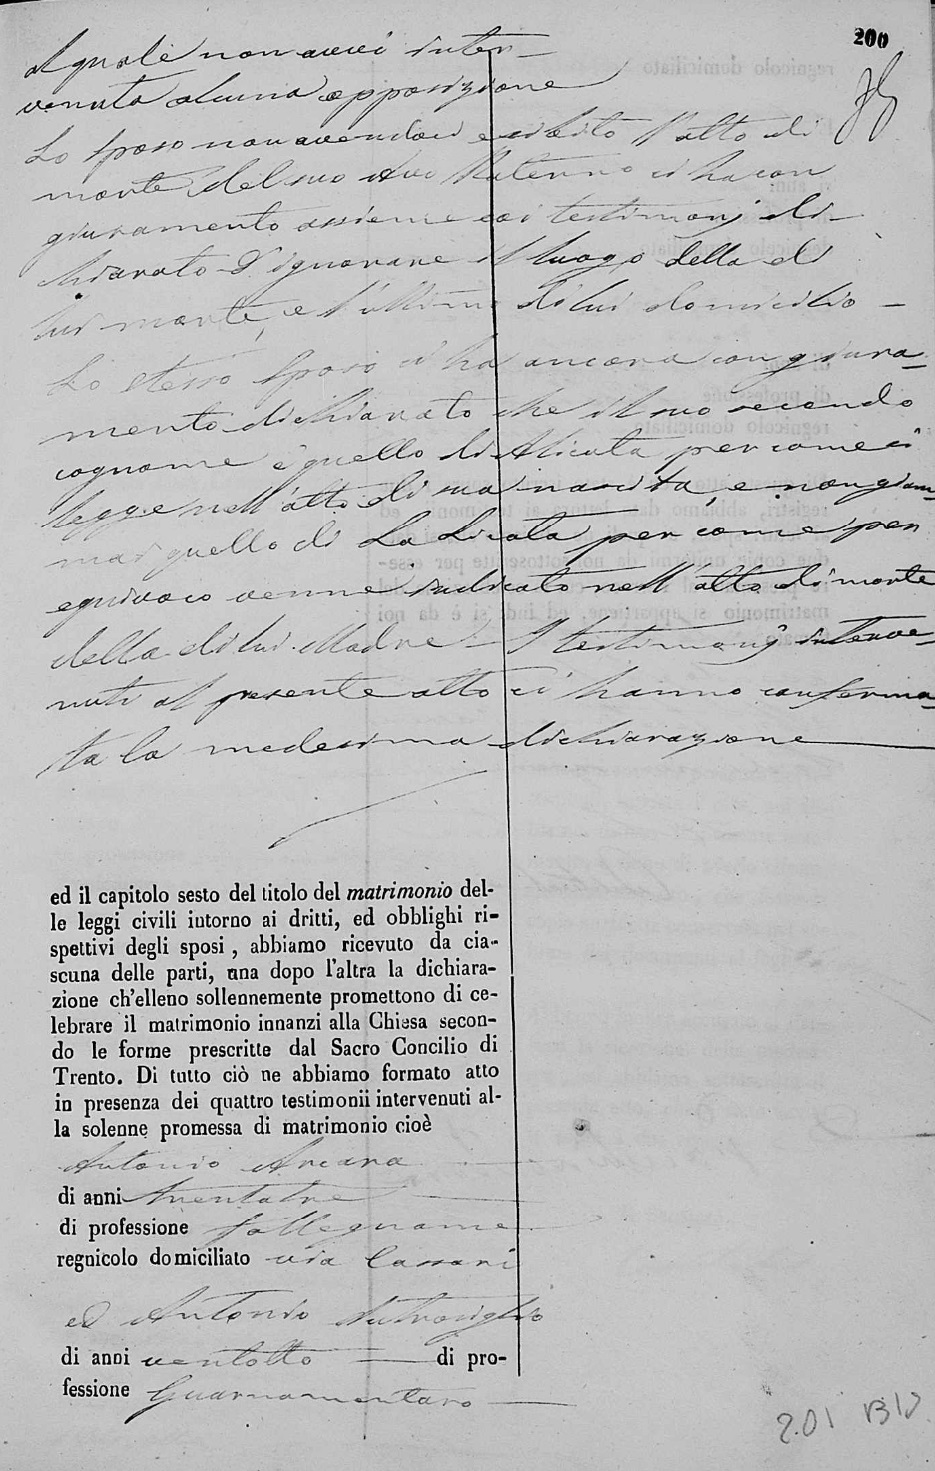 200
al quale non avvi inter-
venuta alcuna opposizione
Lo sposo non avendoci esibito l'atto di
morte del suo Avo Materno ci ha con
giuramento assieme coi testimonj di-
chiarato d'ignorare il luogo della di
lui morte, e l'ultimo di lui domicilio -
Lo stesso sposo ci ha ancora con giura-
mento dichiarato che il suo secondo
cognome è quello di Alicata per come si
legge nell'atto di sua nascita, e non giam-
mai quello di La Licata per come per
equivoco venne indicato nell'atto di morte
della di lui Madre - I testimonj interve-
nuti al presente atto ci hanno conferma-
ta la medesima dichiarazione
ed il capitolo sesto del titolo del matrimonio del-
le leggi civili intorno ai dritti, ed obblighi ri-
spettivi degli sposi, abbiamo ricevuto da cia-
scuna delle parti, una dopo l'altra la dichiara-
zione ch'elleno sollennemente promettono di ce-
lebrare il matrimonio innanzi alla Chiesa secon-
do le forme prescritte dal Sacro Concilio di
Trento. Di tutto ciò ne abbiamo formato atto
in presenza dei quattro testimonii intervenuti al-
la solenne promessa di matrimonio cioè
Antonio Arcara
di anni trentatre
di professione fallegname
regnicolo domiciliato via Cassari
ed Antonio
di anni ventotto di pro-
fessione Guarnamentaro
201